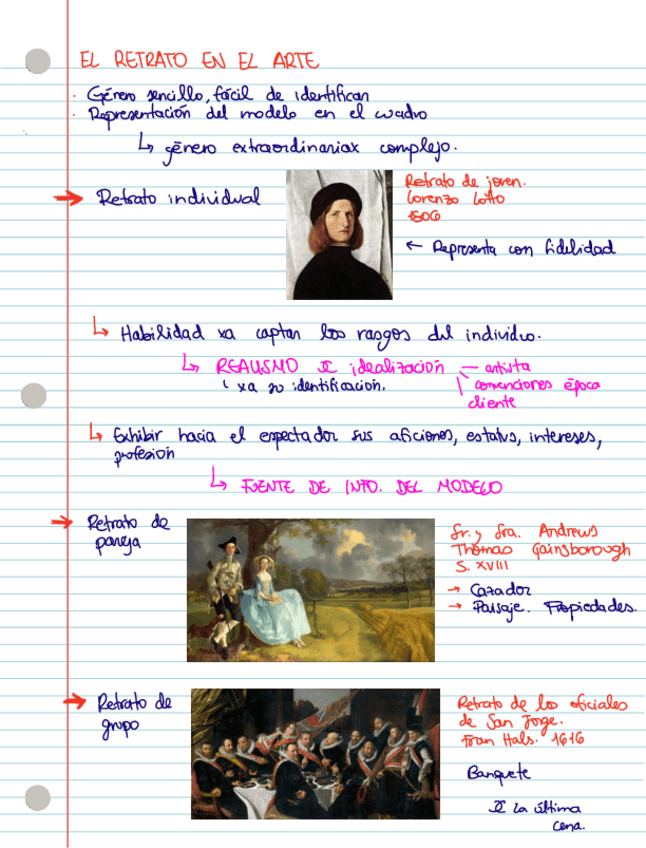 EL RETRATO EN EL ARTE
· Género sencillo, fácil de identificar
· Representación del modelo en el cuadro
↳ género extraordinariax complejo.
→ Retrato individual
Retrato de joven.
Lorenzo Lotto
1506
← Representa con fidelidad
↳ Habilidad xa captar los rasgos del individuo.
↳ REALISMO idealización — artista
convenciones época
cliente
xa su identificación.
↳ Exhibir hacia el espectador sus aficiones, estatus, intereses,
profesión
↳ FUENTE DE INFO. DEL MODELO
→ Retrato de
pareja
Sr. y Sra. Andrews
Thomas Gainsborough
S. XVIII
→ Cazador
→ Paisaje. Propiedades.
→ Retrato de
grupo
Retrato de los oficiales
de San Jorge.
Fran Hals. 1616
Banquete
La última
cena.